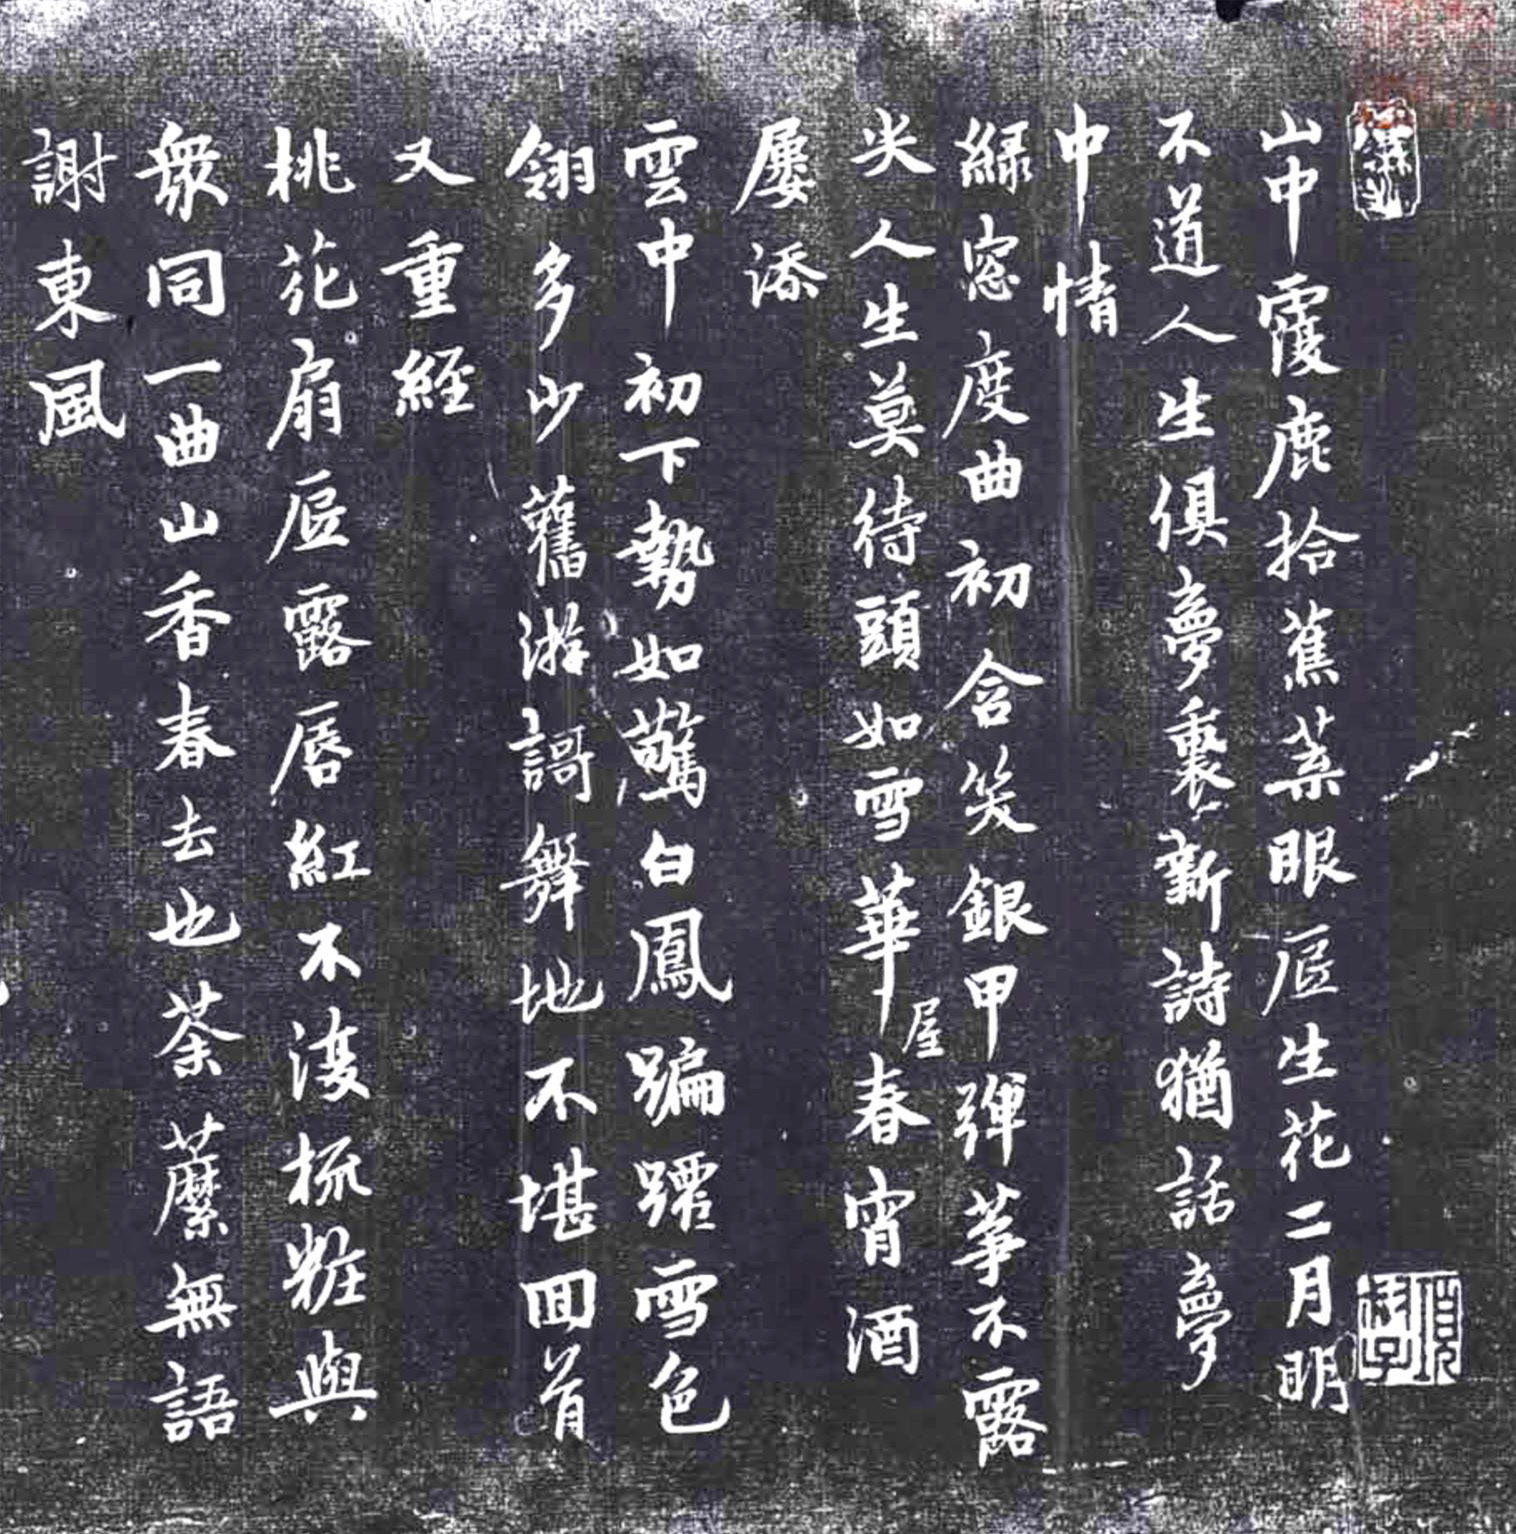 山中覆鹿拾蕉葉眼底生花二月明
不道人生俱夢裏新詩猶話夢
中情
緑窓度曲初含笑銀甲彈箏不露
尖人生莫待頭如雪華屋春宵酒
屢添
雲中初下勢如驚白鳳蹁躚雪色
翎多少舊游謌舞地不堪回首
又重経
桃花扇底露唇紅不復梳粧與
衆同一曲山香春去也荼䕷無語
謝東風